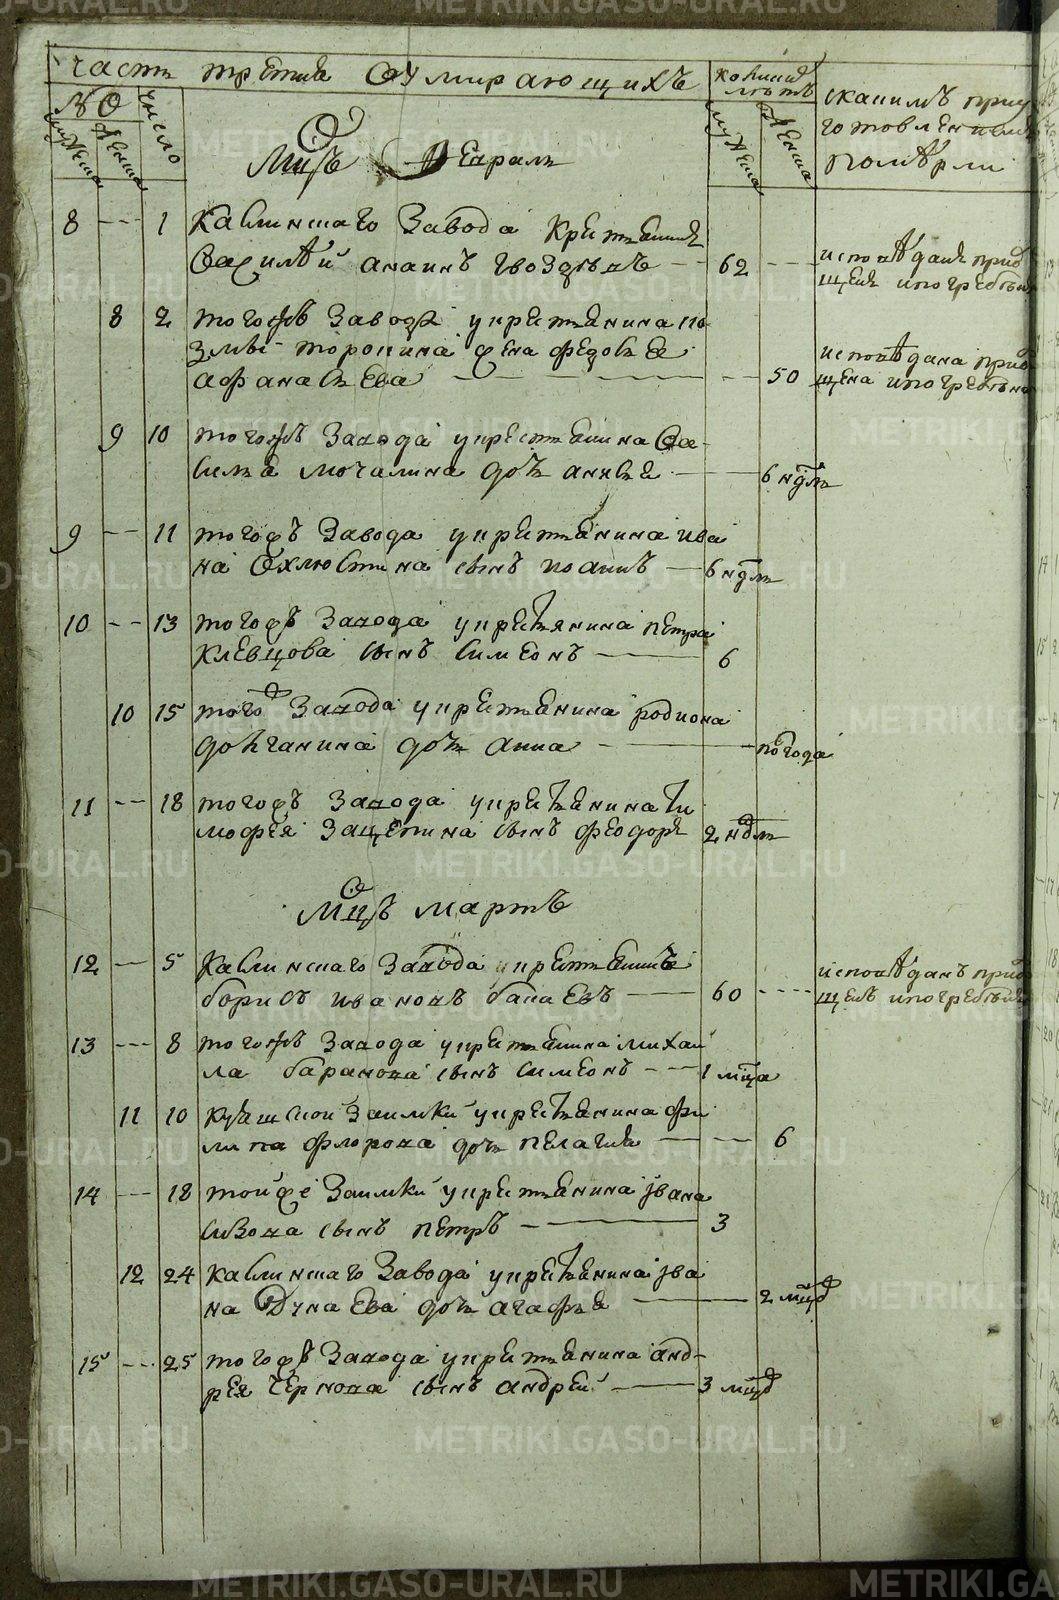 часть третия Оумирающихъ
колико лѣтъ
скакимъ приу
готовлениемъ
помѣрли
№
мужеска
женска
число
мужеска
женска
Мцъ Февраль
8 --- 1 Каслинскаго Завода крестьянинъ
Василей ананинъ гвоздевъ --- 62 --- исповѣданъ приоб
щенъ ипогребенъ
8 2 тогожъ Завода укрестьянина ко
змы торопина жена федосья исповѣдана приоб
афанасьева --- 50 щена ипогребена
9 10 тогожъ Завода укрестьянина Ва-
силья мочалина дочь --- 6 ндѣль
9 -- 11 тогожъ Завода укрестьянина ива
на Охлюстина сынъ иоаннъ --- 6 ндѣль
10 -- 13 тогожъ Завода укрестьянина петра
Клевцова сынъ симеонъ --- 6
10 15 тогож Завода укрестьянина родиона
долганина дочь анна --- полгода
11 -- 18 тогожъ Завода укрестьянина ти
мофея Зацепина сынъ феодоръ 2 ндѣль
Мцъ мартъ
12 -- 5 Каслинскаго Завода крестьянинъ исповѣданъ приоб
борисъ ивановъ --- 60 ---- щенъ ипогребенъ
13 --- 8 тогожъ Завода укрестьянина михаи
ла баранова сынъ симеонъ --- 1 мца
11 10 Заимки укрестьянина фи
липа флорова дочь пелагия --- 6
14 --- 18 тойже Заимки укрестьянина iвана
сизова сынъ петръ --- 3
12 24 Каслинскаго Завода укрестьянина iва
на Дунаева дочь агафья --- 2 мцов
15 --- 25 тогожъ Завода укрестьянина анд-
рея чернова сынъ андрей --- 3 мцов
METRIKI.GASO-URAL.RU